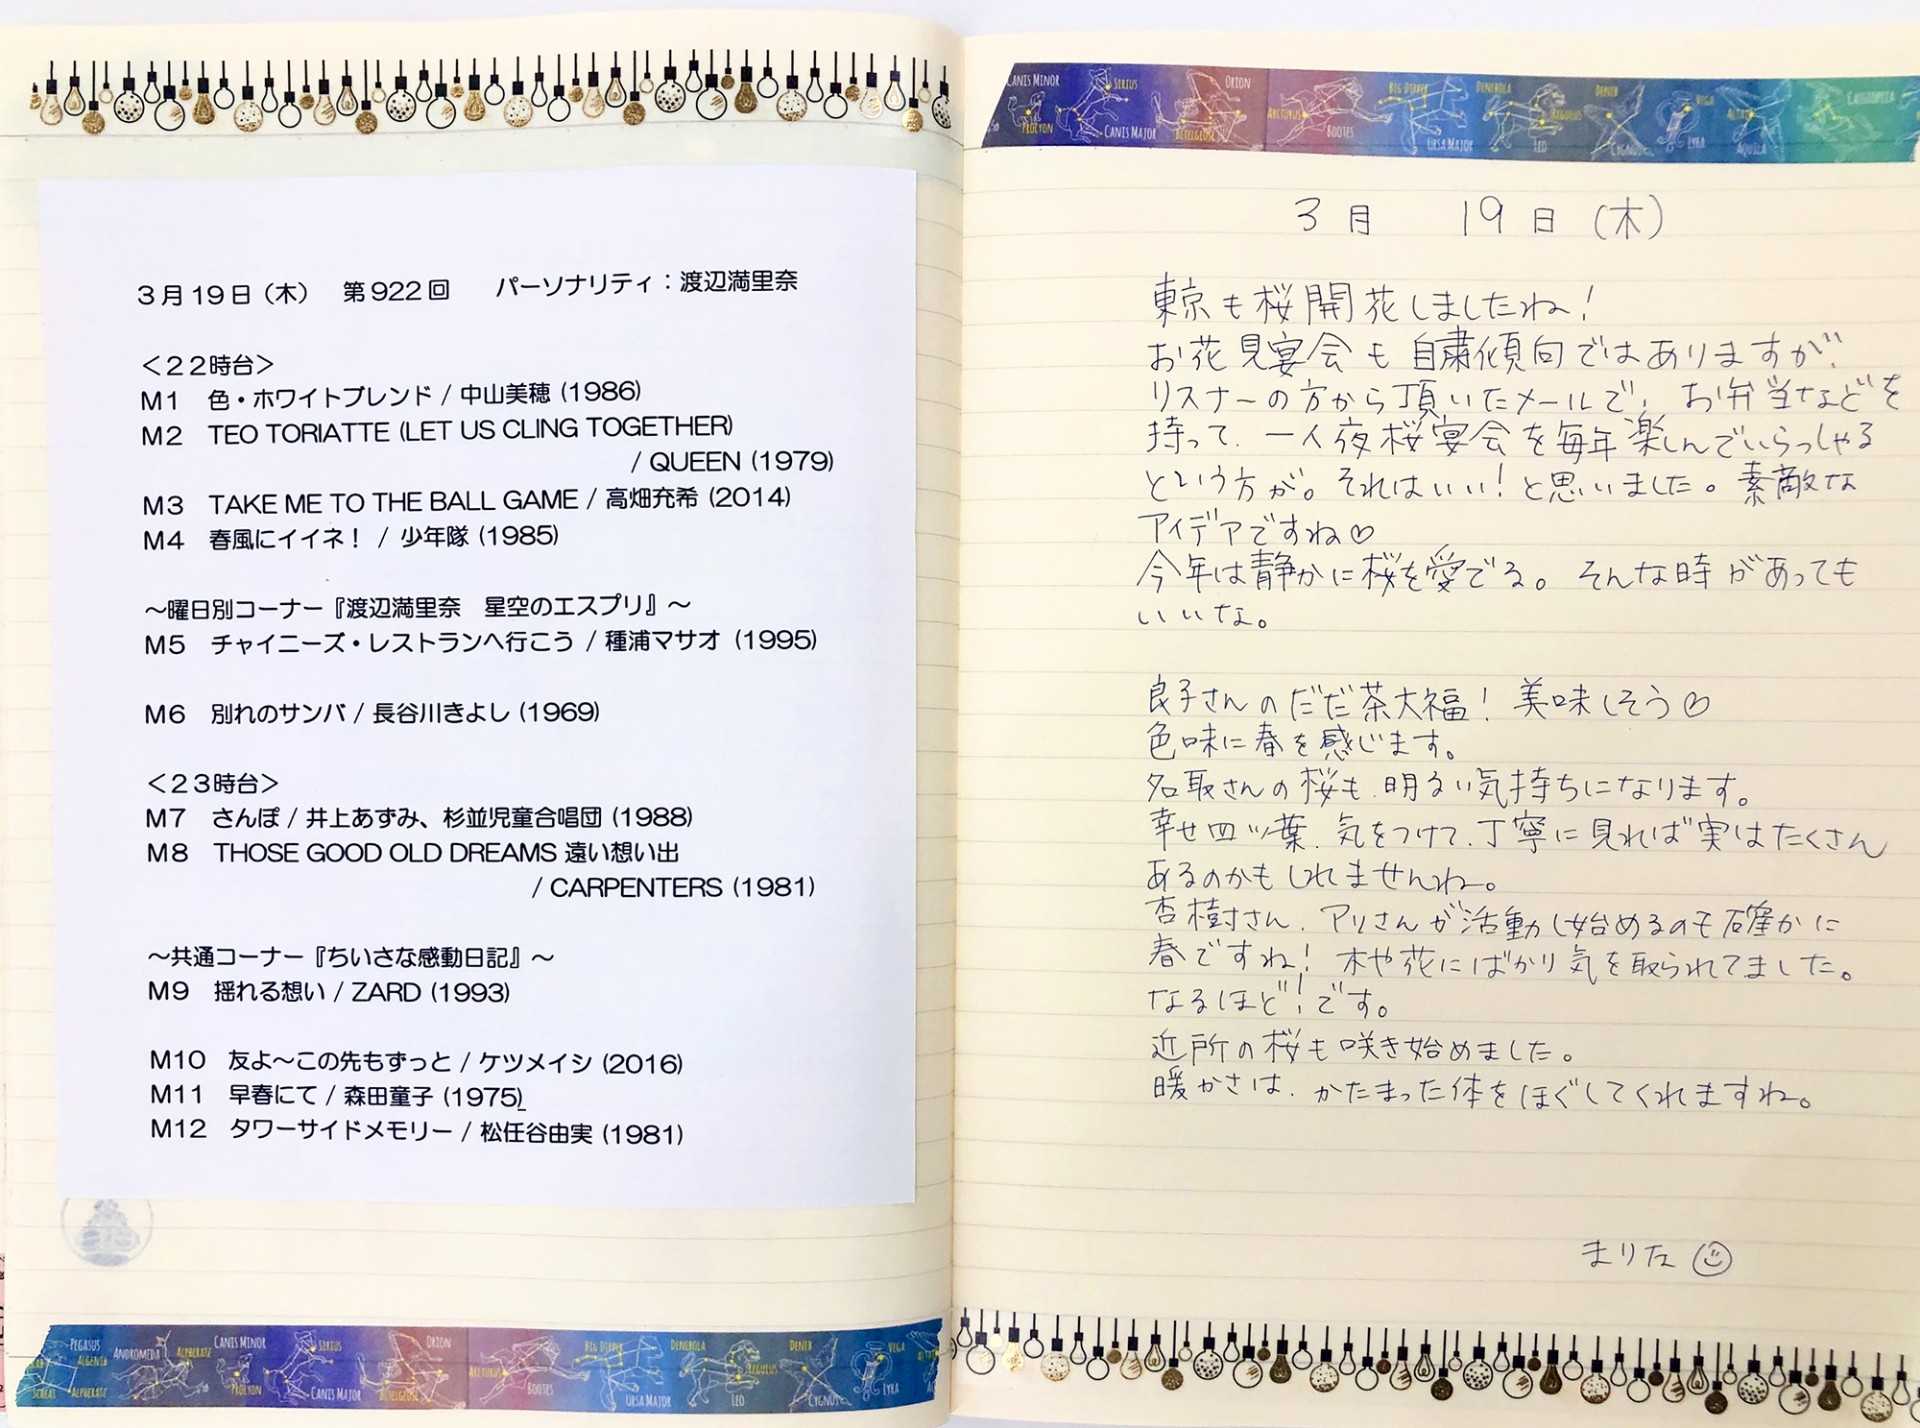 3月19日（木）　第922回　　パーソナリティ：渡辺満里奈
＜22時台＞
M1　色・ホワイトブレンド / 中山美穂 (1986)
M2　TEO TORIATTE (LET US CLING TOGETHER)
/ QUEEN (1979)
M3　TAKE ME TO THE BALL GAME / 高畑充希 (2014)
M4　春風にイイネ！ / 少年隊 (1985)
～曜日別コーナー『渡辺満里奈　星空のエスプリ』～
M5　チャイニーズ・レストランへ行こう / 種浦マサオ (1995)
M6　別れのサンバ / 長谷川きよし (1969)
＜23時台＞
M7　さんぽ / 井上あずみ、杉並児童合唱団 (1988)
M8　THOSE GOOD OLD DREAMS 遠い想い出
/ CARPENTERS (1981)
～共通コーナー『ちいさな感動日記』～
M9　揺れる想い / ZARD (1993)
M10　友よ～この先もずっと / ケツメイシ (2016)
M11　早春にて / 森田童子 (1975)
M12　タワーサイドメモリー / 松任谷由実 (1981)
PEGASUS ANDROMEDA ALPHERATZ CANIS MINOR PROCYON SIRIUS CANIS MAJOR ORION BETELGEUSE ARCTURUS BOOTES BIG DIPPER URSA MAJOR DENEBOLA LEO REGULUS DENEB CYGNUS VEGA LYRA
CANIS MINOR PROCYON SIRIUS CANIS MAJOR ORION BETELGEUSE ARCTURUS BOOTES BIG DIPPER URSA MAJOR DENEBOLA LEO REGULUS DENEB CYGNUS VEGA LYRA ALTAIR AQUILA CASSIOPEIA
3月　19日（木）
東京も桜開花しましたね！
お花見宴会も自粛傾向ではありますが、
リスナーの方から頂いたメールで、お弁当などを
持って、一人夜桜宴会を毎年楽しんでいらっしゃる
という方が。それはいい！と思いました。素敵な
アイデアですね♡
今年は静かに桜を愛でる。そんな時があっても
いいな。
良子さんのだだ茶大福！美味しそう♡
色味に春を感じます。
名取さんの桜も、明るい気持ちになります。
幸せ四ッ葉、気をつけて、丁寧に見れば実はたくさん
あるのかもしれませんね。
杏樹さん、アリさんが活動し始めるのも確かに
春ですね！木や花にばかり気を取られてました。
なるほど！です。
近所の桜も咲き始めました。
暖かさは、かたまった体をほぐしてくれますね。
まりな☺